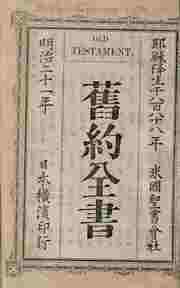 OLD
TESTAMENT.
耶穌降生千八百八十八年 米國聖書會社
舊約全書
明治二十一年 日本橫濱印行